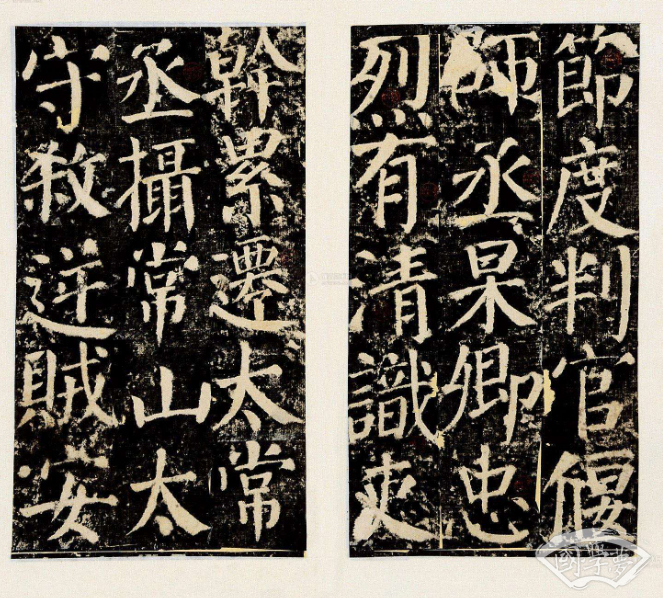 節度判官偃
師丞杲卿忠
烈有清識吏
幹累遷太常
丞攝常山太
守殺逆賊安
國學夢